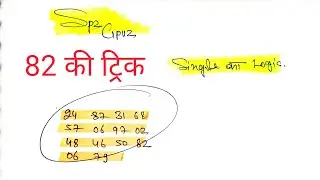 Spz
Gpuz
82 की ट्रिक
Single का Logic.
24 87 31 68
57 06 97 02
48 46 50 82
06 79